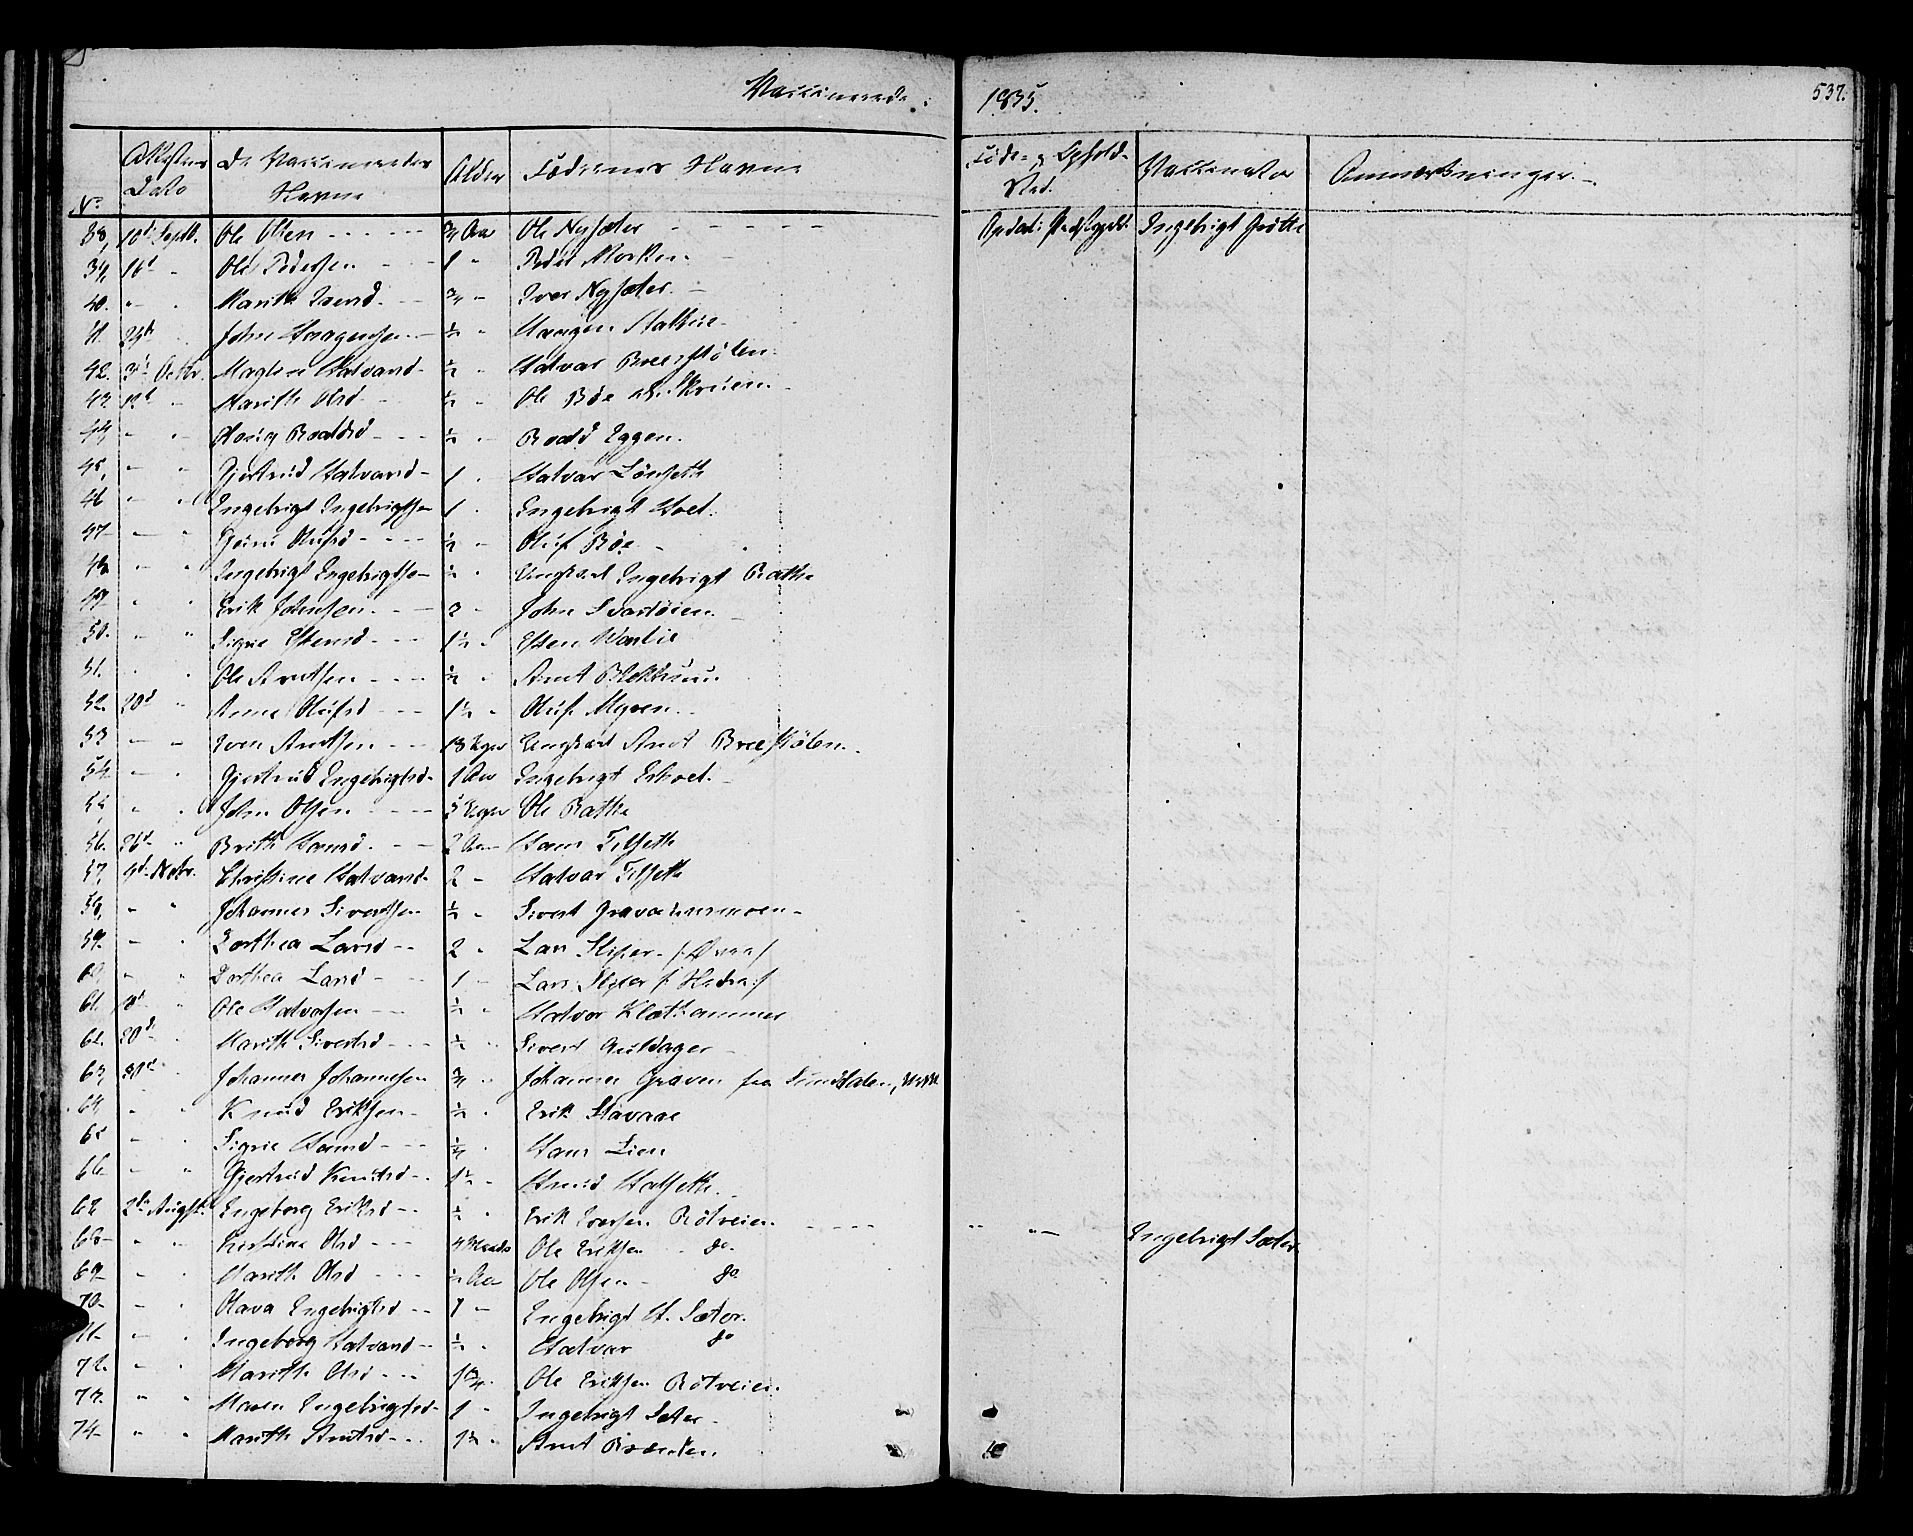 Vaccinerede
1835.
537.
No
Attestens Dato
De Vaccineredes Navne
Alder
Fædrenes Navne
Føde- og Opholds-Sted.
Vaccinator
Anmærkninger.
38, 10d Septb. Ole Olsen ¾ Aar Ole Nysæter Opdals Præstegjeld. Ingebrigt Grøtte
39, 16d " Ole Pedersen 1 " Peder
40. " " Marith Iversd. ¾ " Iver Nysæter.
41. 24d " John Haagensen ½ " Haagen Stølen
42. 3d Octbr. Maglene Halvarsd. ½ " Halvar Breeskølen.
43 12d " Marith Olsd ½ " Ole Böe
44, " " Roaldsd ½ " Roald Eggen.
45, " " Gjertrud Halvarsd 1 " Halvar Lönseth
46 " " Ingebrigt Ingebrigtsen 1 " Engebrigt Hoel.
47 " " Olufsd ½ " Oluf Böe
48 " " Ingebrigt Engebrigtsen ½ " Ungkarl Ingebrigt Rathe
49 " " Erik Johnsen. 3 " John Svartøien.
50. " " Sigrie Estensd 1½ " Esten Vorlie
51. " " Ole Arntsen ½ " Arnt
52. 20d " Anne Olufsd 1½ " Oluf Myren.
53 " " Iven Arntsen 18 Uger Ungkarl Arnt Breeskølen.
54. " " Gjertrud Engebrigtsd. 1 Aar Ingebrigt Hoel.
55, " " John Olsen 5 Uger Ole Rathe
56. 26d " Brith Hansd. 2 Aar Hans Tilseth
57, 9d Novbr. Christine Halvarsd. 2 " Halvar Tilseth
58, " " Johannes Sivertsen ½ " Sivert Gravaunemoen
59. " " Dorthea Larsd 2 " Lars Sliper
60, " " Dorthea Larsd 1 " Lars Sliper /: Nedre :/
61. 18d " Ole Halvorsen ½ " Halvor Klæthammer
62. 20d " Marith Sivertsd ½ " Sivert Auldager
63, 31d " Johannes Johannesen ¾ " Johannes Graven fra Sundalen,
64, " " Knud Eriksen ½ " Erik Stavaae
65 " " Sigrie Hansd ¼ " Hans Lien
66. " " Gjertrud Knudsd 1½ " Knud Halseth.
67 2d August. Engeborg Eriksd ½ " Erik Iversen Rötveien
68 " " Kirstine Olsd 4 Maaneder Ole Eriksen do. " " Ingebrigt Sæter.
69 " " Marith Olsd ½ Aar Ole Olsen do.
70 " " Olava Engebrigtsd 1 " Engebrigt H. Sæter.
71. " " Ingeborg Halvarsd ½ " Halvar do
72. " " Marith Olsd 1¾ " Ole Eriksen Rötveien.
73. " " Maren Ingebrigtsd 1 " Ingebrigt Sæter
74 " " Marith Arntsd 1½ " Arnt Brænden.